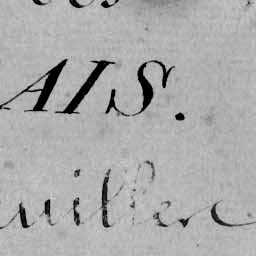 AIS.
uiller